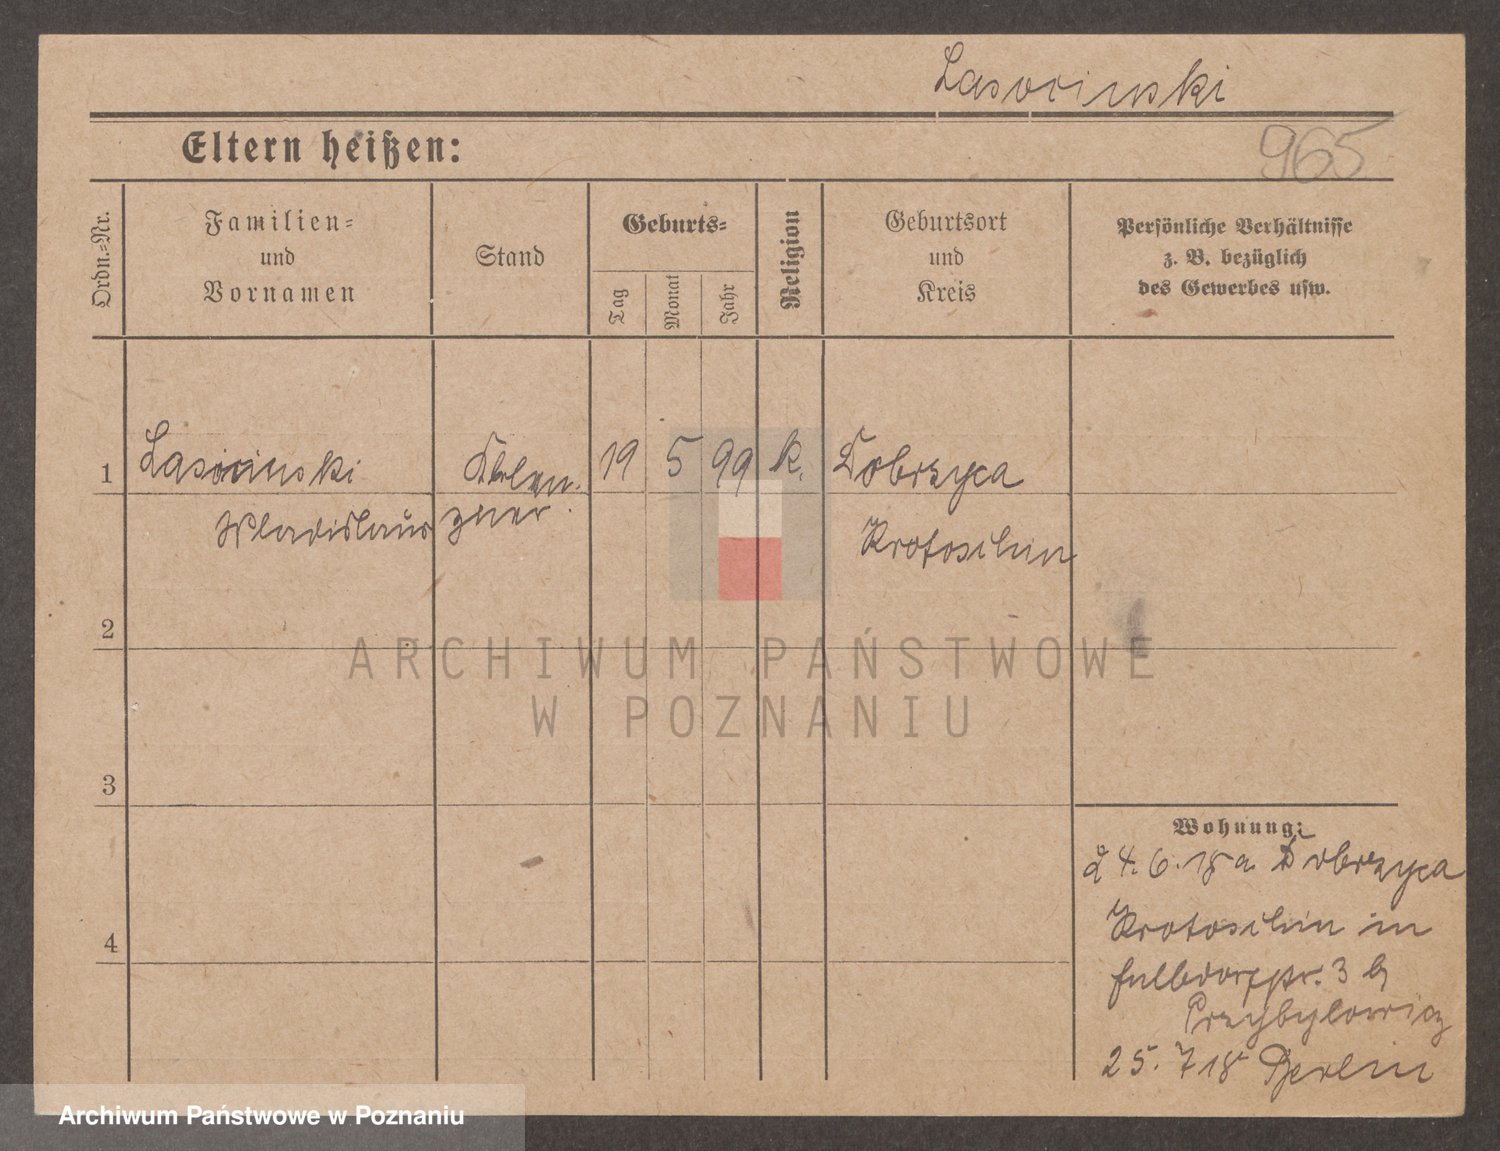 Lasocinski
Eltern heißen:
965
Ordn.-Nr.
Familien-
und
Vornamen
Stand
Geburts-
Tag
Monat
Jahr
Religion
Geburtsort
und
Kreis
Persönliche Verhältnisse
z. B. bezüglich
des Gewerbes usw.
1
Lasocinski
19
5
99
k.
Dobrzyca
Wladislaus
Krotoschin
2
3
4
Wohnung:
24.6.18 a Dobrzyca
Krotoschin in
3 b
Przybylowicz
25.7 18 Berlin
ARCHIWUM PAŃSTWOWE
W POZNANIU
Archiwum Państwowe w Poznaniu